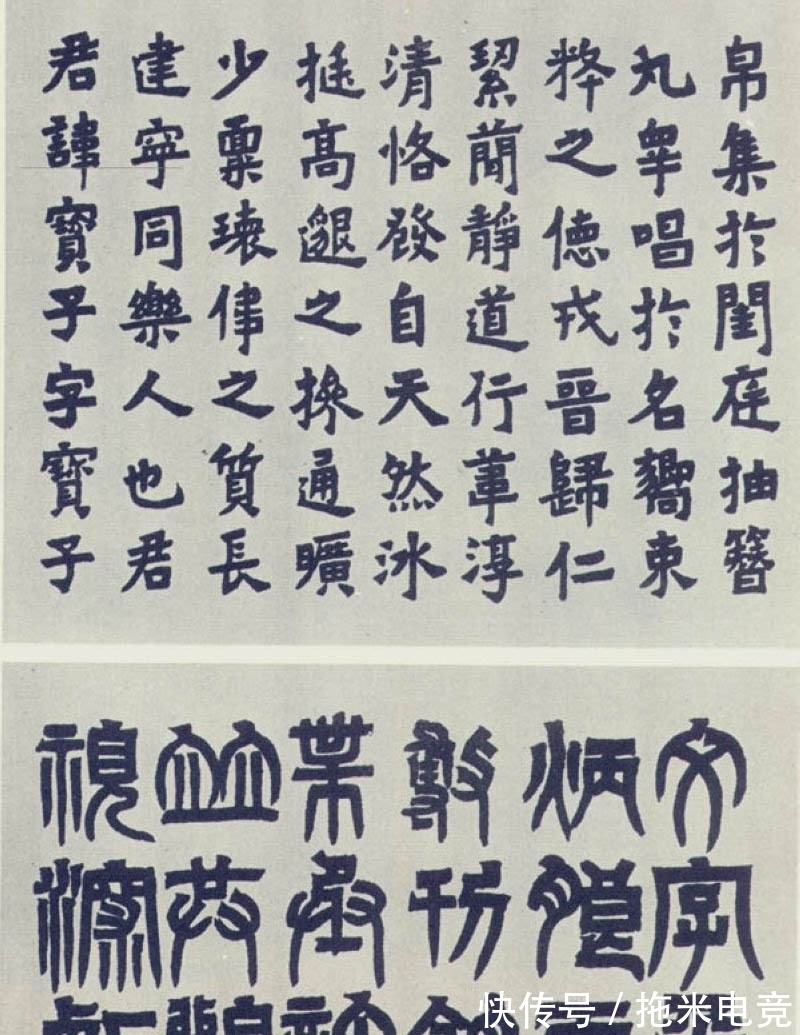 君諱寶子字寶子
建寧同樂人也君
少稟瓌偉之質長
挺高邈之操通曠
清恪發自天然冰
絜簡靜道行葦淳
粹之德戎晉歸仁
九皋唱於名嚮束
帛集於閨庭抽簪
視深
並共
業
刊
炳
文字
快传号/拖米电竞